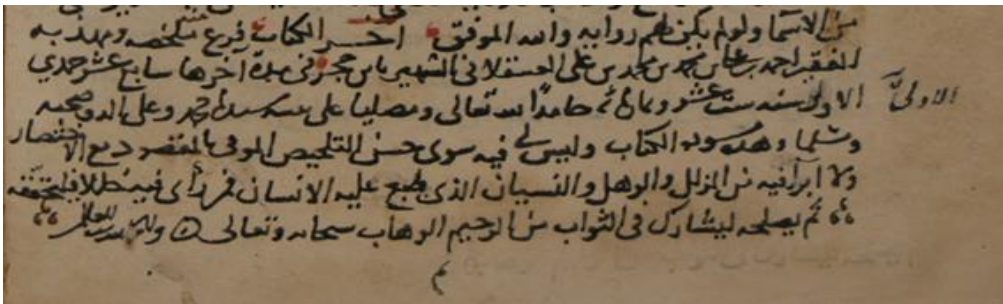 من الاسما ولو لم يكن لهم رواية والله الموفق آخر الكتاب فرغ ملخصه ومهذبه
الفقير احمد بن علي بن محمد بن محمد بن علي العسقلاني الشهير بابن حجر في مدة آخرها سابع عشر جمدي
الاولى سنة ست عشر وثمان مائة حامدًا الله تعالى ومصليا على سيدنا محمد وعلى اله وصحبه
الاولى
ومسلما وهذه مسودة الكتاب وليس لي فيه سوى حسن التلخيص الموفي بالمقصود مع الاختصار
ولا ابرأ فيه من الزلل والوهل والنسيان الذي طبع عليه الانسان فمن رأى فيه خللا فليحققه
ثم يصلحه ليشارك في الثواب من الرحيم الوهاب سبحانه وتعالى
م